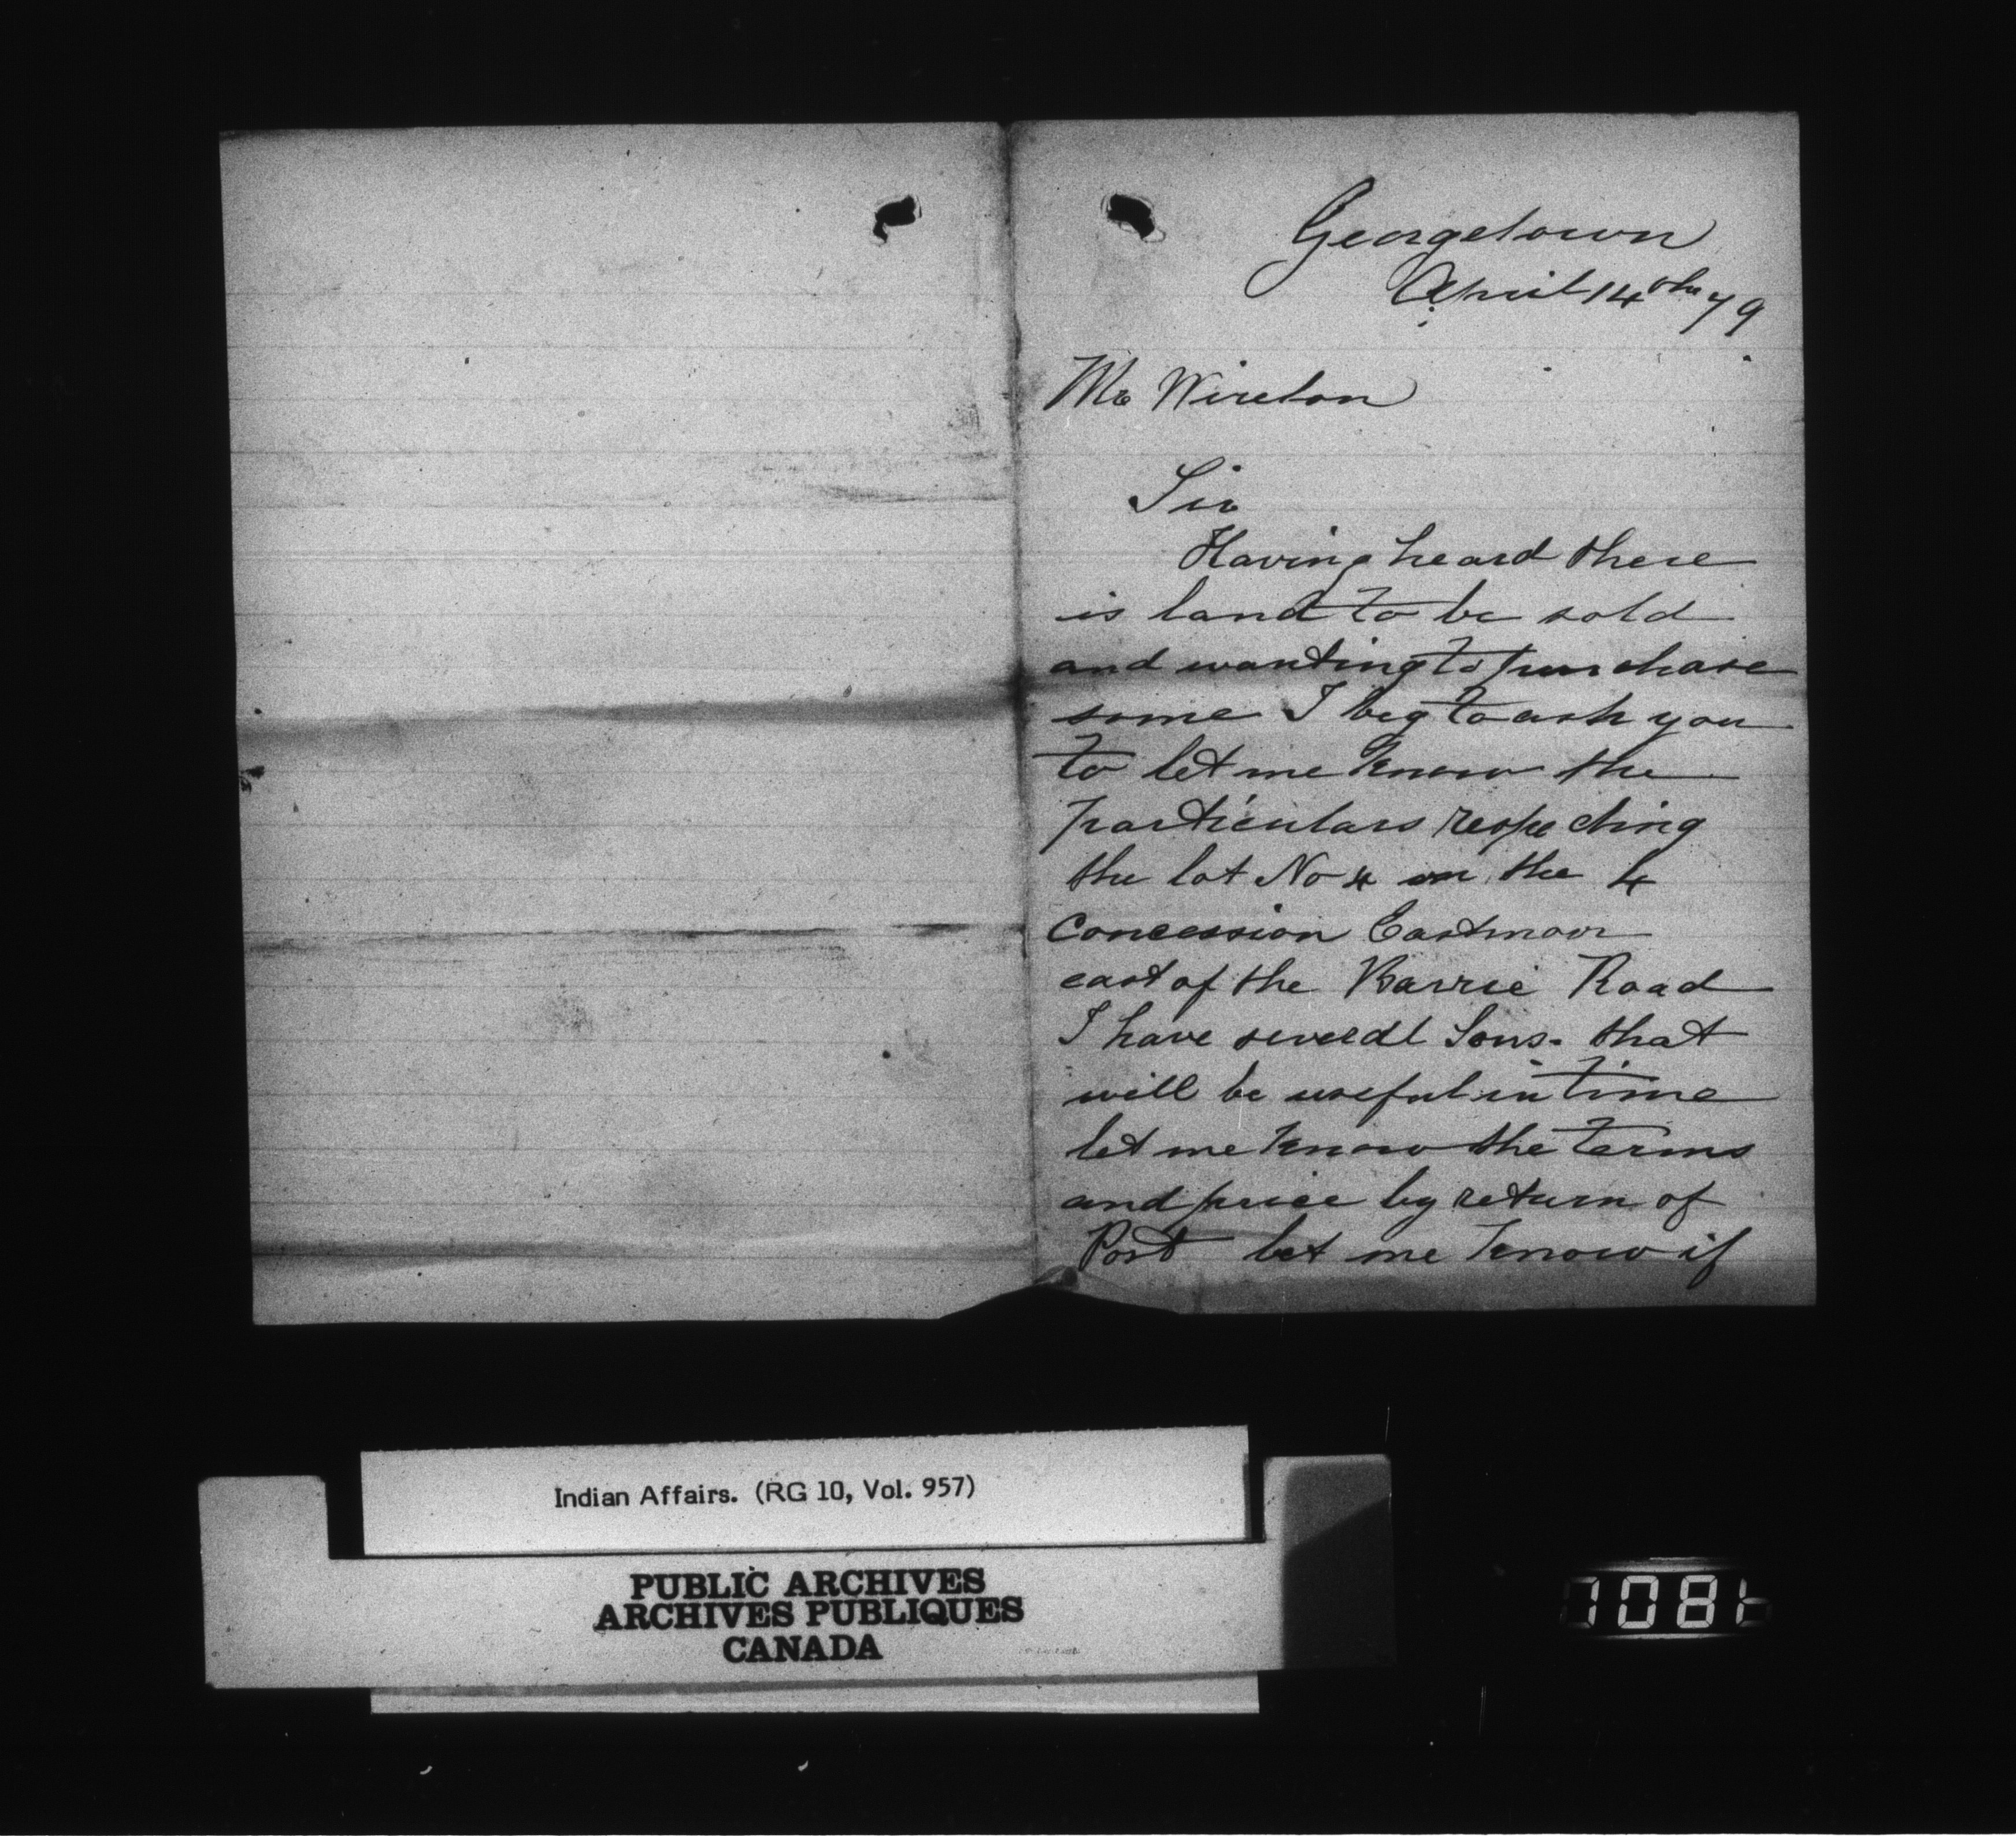 Georgetown
April 14th 79
Mr Wireton
Sir
Having heard there
is land to be sold
and wanting to purchase
some I beg to ask you
to let me know the
particulars respecting
the lot No 4 on the 4
Concession Eastnoor
east of the Barrie Road
I have severel Sons. that
will be useful in time
let me know the terms
and price by return of
Post let me know if
Indian Affairs. (RG 10, Vol. 957)
PUBLIC ARCHIVES
ARCHIVES PUBLIQUES
CANADA